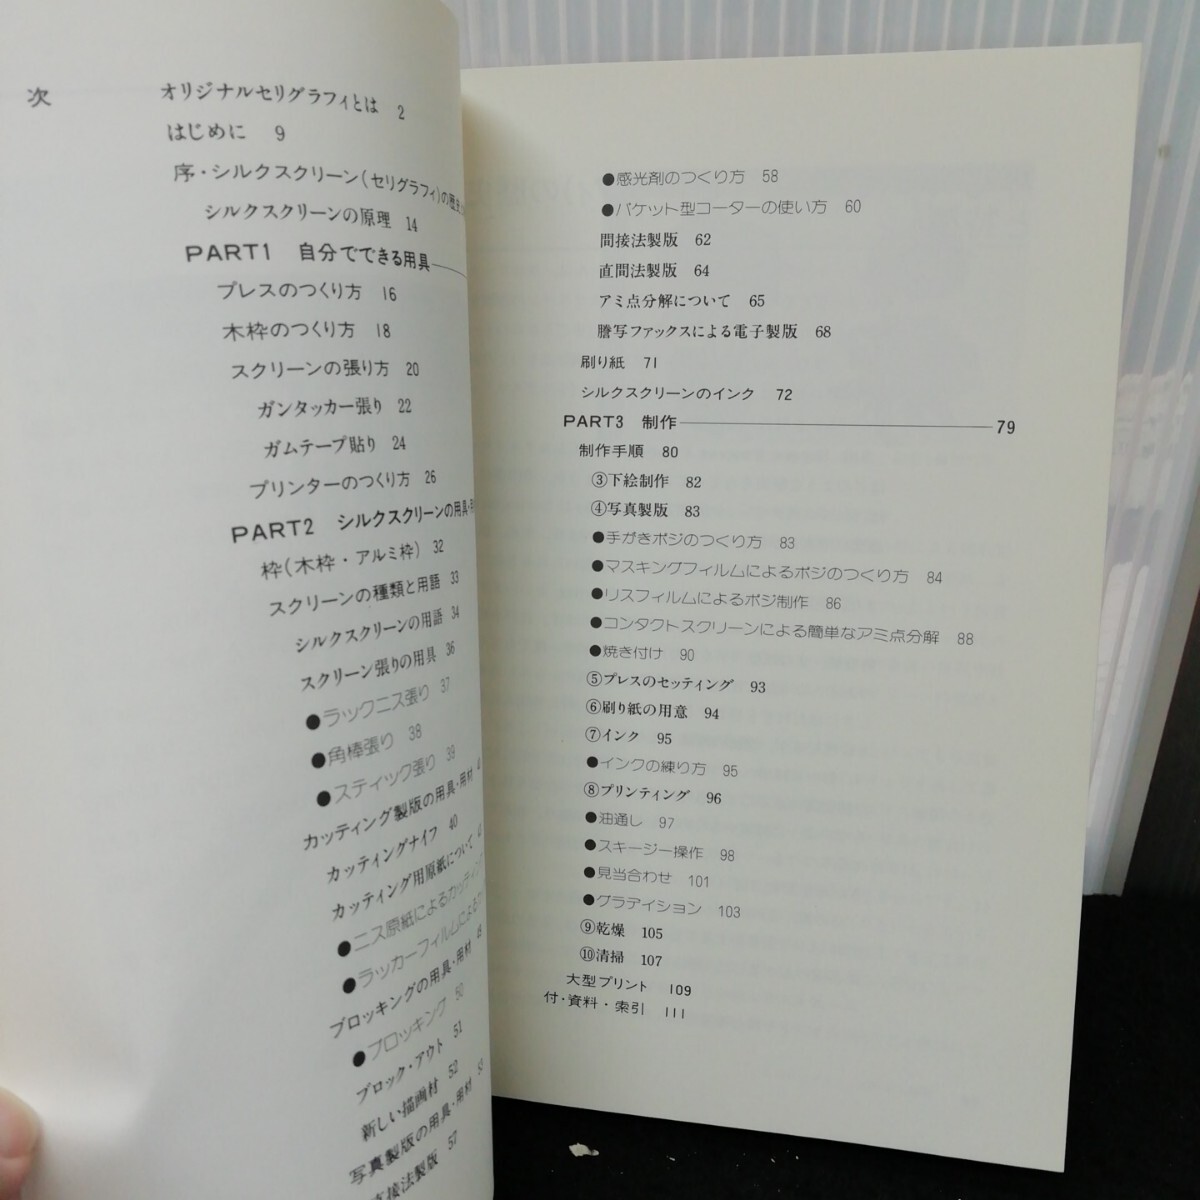 次
オリジナルセリグラフィとは 2
はじめに 9
序・シルクスクリーン(セリグラフィ)の歴史
シルクスクリーンの原理 14
PART1 自分でできる用具
プレスのつくり方 16
木枠のつくり方 18
スクリーンの張り方 20
ガンタッカー張り 22
ガムテープ貼り 24
プリンターのつくり方 26
PART2 シルクスクリーンの用具・
枠(木枠・アルミ枠) 32
スクリーンの種類と用語 33
シルクスクリーンの用語 34
スクリーン張りの用具 36
●ラックニス張り 37
●角棒張り 38
●スティック張り 39
カッティング製版の用具・用材
カッティングナイフ 40
カッティング用原紙について
●ニス原紙によるカッティング
●ラッカーフィルムによる
ブロッキングの用具・用材 49
●ブロッキング 50
ブロック・アウト 51
新しい描画材 52
写真製版の用具・用材 53
直接法製版 57
●感光剤のつくり方 58
●バケット型コーターの使い方 60
間接法製版 62
直間法製版 64
アミ点分解について 65
謄写ファックスによる電子製版 68
刷り紙 71
シルクスクリーンのインク 72
PART3 制作 79
制作手順 80
③下絵制作 82
④写真製版 83
●手がきポジのつくり方 83
●マスキングフィルムによるポジのつくり方 84
●リスフィルムによるポジ制作 86
●コンタクトスクリーンによる簡単なアミ点分解 88
●焼き付け 90
⑤プレスのセッティング 93
⑥刷り紙の用意 94
⑦インク 95
●インクの練り方 95
⑧プリンティング 96
●油通し 97
●スキージー操作 98
●見当合わせ 101
●グラデイション 103
⑨乾燥 105
⑩清掃 107
大型プリント 109
付・資料・索引 111